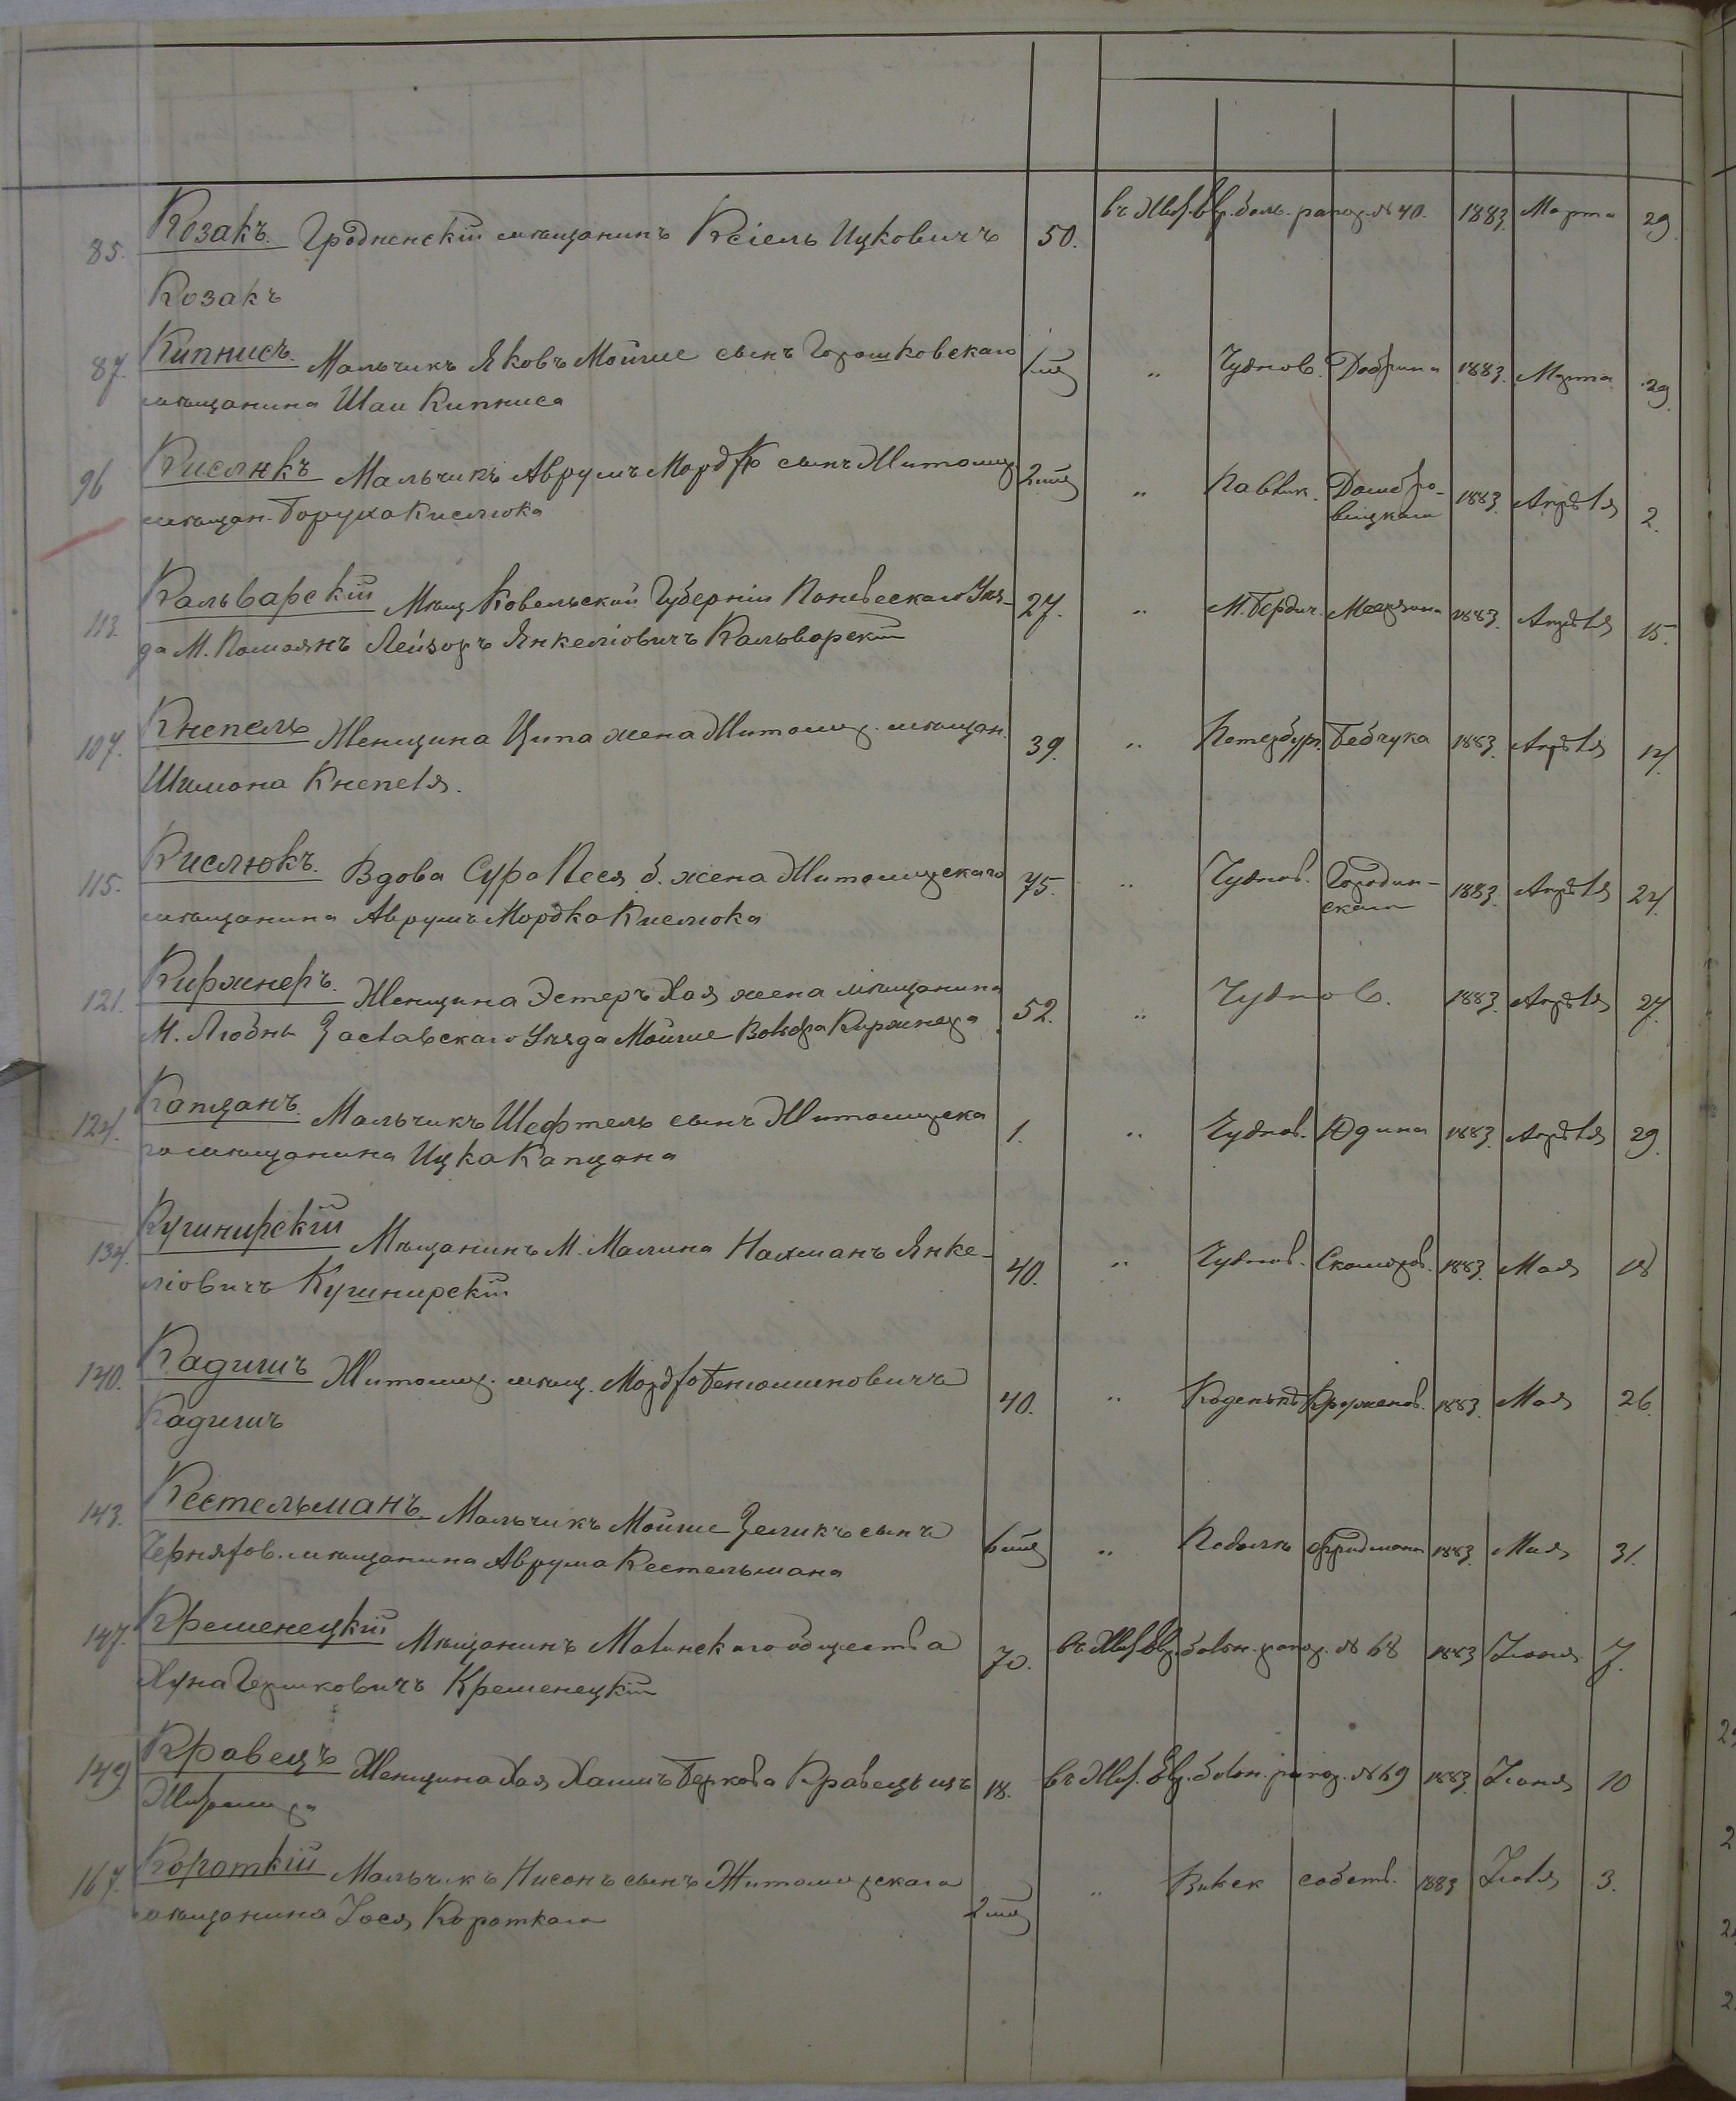 85. Козакъ. Гродненскій мѣщанинъ Ксіель Ицковичъ 50. въ Жит. Евр. боль. рапор. № 40. 1883. Марта 29
Козакъ
87. Кипнисъ. Мальчикъ Яковъ Мойше сынъ Горошковскаго 1 мѣс „ Чуднов. Добрина 1883. Марта 29.
мѣщанина Шаи Кипниса
96 Кислюкъ Мальчикъ Аврумъ Мордко сынъ Житомир 2 мѣс „ Павлик. Домбро- 1883. Апрѣля 2.
вицкаго
мѣщан. Боруха Кислюка
113. Кальварскій Мѣщ Ковельской Губерніи Поневескаго Уѣз- 27. „ М. Бердич. 1883. Апрѣля 15.
да М. Лейзоръ Янкеліовичъ Кальварскій
107. Кнепель Женщина Ципа жена Житомир. мѣщан. 39. „ Петербур. Бебчука 1883. Апрѣля 14.
Шимона Кнепеля.
115. Кислюкъ. Вдова Сура Песя б. жена Житомирскаго 75. „ Чуднов. Городин- 1883. Апрѣля 24.
скаго
мѣщанина Аврумъ Мордка Кислюка
121. Киржнеръ. Женщина Эстеръ Хая жена мѣщанина 52. „ Чуднов. 1883. Апрѣля 27.
М. Заславскаго Уѣзда Мойше Вольфа Киржнера
124. Капцанъ. Мальчикъ Шефтель сынъ Житомирска 1. „ Чуднов. Юдина 1883. Апрѣля 29.
го мѣщанина Ицка Капцана
134. Кушнирскій Мѣщанинъ М. Малина Нахманъ Янке- 40. „ Чуднов. Скоморов. 1883. Мая 18
ліовичъ Кушнирскій
140. Кадишъ Житомир. мѣщ. Мордко Беніоминовичъ 40. „ 1883. Мая 26.
Кадишъ
143. Кестельманъ Мальчикъ Мойше Зеликъ сынъ 6 мѣс „ Подолк Фридмана 1883. Мая 31.
Черняхов. мѣщанина Аврума Кестельмана
147. Кременецкій Мѣщанинъ Малинскаго общества 70. въ Жит. Евр. больн. рапор. № 68 1883 Іюня 7.
Хуна Гершковичъ Кременецкій
149 Кравецъ Женщина Хая Хаимъ Беркова Кравецъ изъ 18. въ Жит. Евр. больн. рапор. № 69 1883. Іюня 10
Житомира
167. Короткій Мальчикъ Нисонъ сынъ Житомирскаго 2 мѣс „ собств. 1883 Іюля 3.
мѣщанина Іося Короткаго